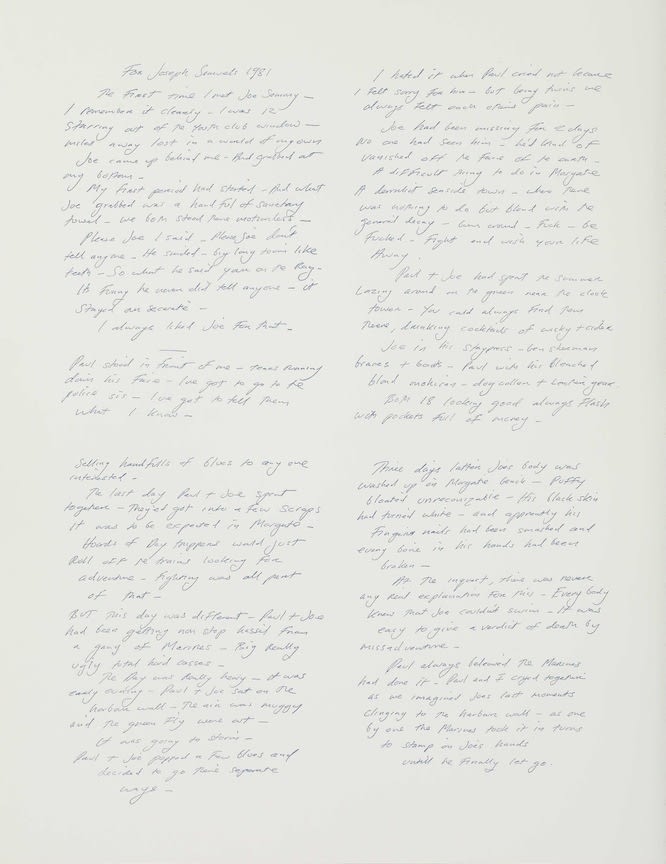 For Joseph Samuels 1981
The First time I met Joe Sammy –
I remember it clearly – I was 12
Starring out of the Youth club window –
miles away lost in a world of my own
Joe came up behind me – And grabbed at
my bottom –
My first period had started – And what
Joe grabbed was a handful of sanctary
towel – we both stood there motionless –
Please Joe I said – Please Joe don't
tell anyone – He smiled – big long tomin like
teeth – So what he said your on the Rag –
Its Funny he never did tell anyone – it
Stayed our secrete –
I always liked Joe For that –
Paul stood in front of me – tears running
down his Face – Ive got to go to the
police sis – Ive got to tell them
what I know –
I hated it when Paul cried not because
I felt sorry for him – but being twins we
always felt each others pain –
Joe had been missing for 2 days
No one had seen him – he'd kind of
vanished off the face of the earth –
A difficult thing to do in Margate
A derrolict seaside town – where there
was nothing to do but blend with the
general decay – bum around – Fuck – be
Fucked – Fight and wish your life
Away
Paul + Joe had spent the summer
Lazing around on the green near the clock
tower – You could always find them
there, drinking cocktails of wisky + cider
Joe in his staypress – ben sherman
braces + boots – Paul with his bleached
blond mohican – dog collar + Leather gear
Both 18 looking good always Flash
with pockets full of money –
Selling handfulls of blues to any one
interested –
The last day Paul + Joe spent
together – They'd got into a few scraps
it was to be expected in Margate –
Hoards of Day trippers would just
Roll off the trains looking for
adventure – fighting was all part
of that –
BUT this day was different – Paul + Joe
had been getting non stop hassel from
a gang of Marines – Big Really
ugly total hard casses –
The Day was Really heavy – it was
early evening – Paul + Joe sat on the
harbour wall – The air was muggy
and the green Fly were out –
It was going to storm –
Paul + Joe popped a few blues and
decided to go there separate
ways –
Three days latter Joes body was
washed up on Margate beach – Puffy
bloated unreconizable – His black skin
had turned white – and apprently his
Finger nails had been smashed and
every bone in his hands had been
broken –
At the inquest, there was never
any real explanation for this – Every body
knew that Joe couldn't swim – It was
easy to give a verdict of death by
missadventure –
Paul always beleived the Marines
had done it – Paul and I cryed together
as we imagined Joes last moments
clinging to the harbour wall – as one
by one the Marines took it in turns
to stamp on Joes hands
untill he finally let go.